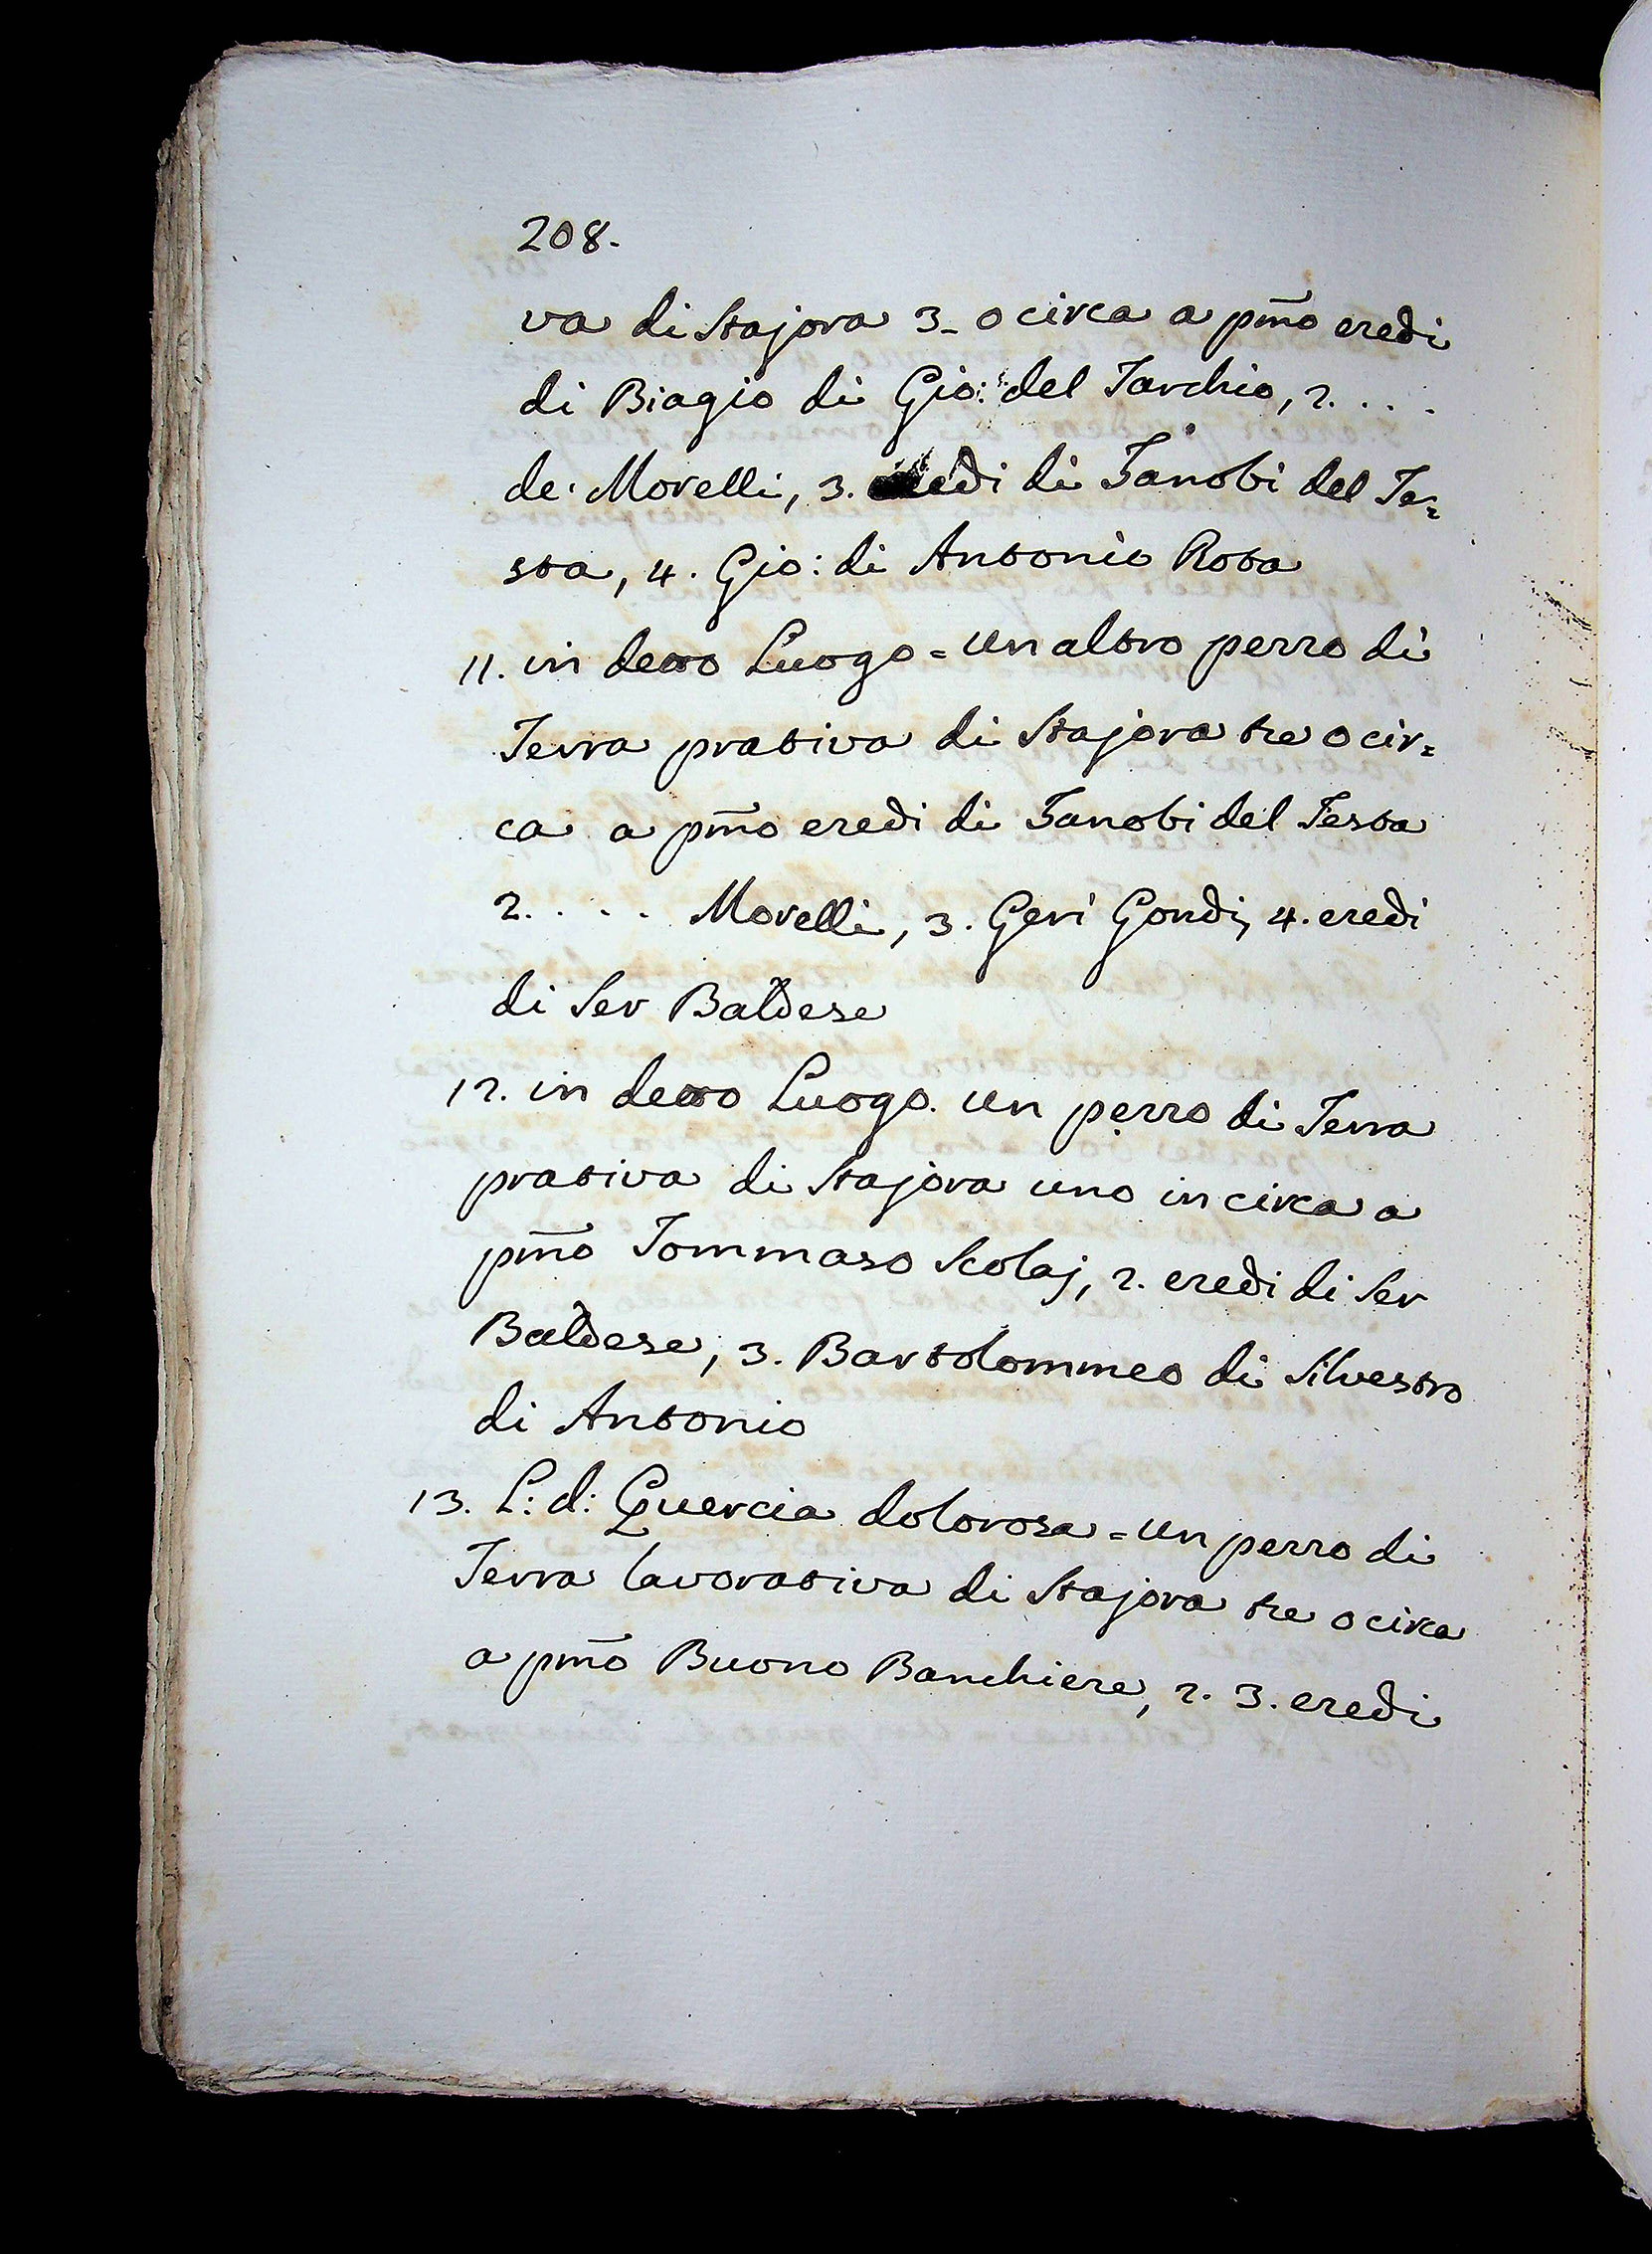 208.
va di Stajora 3_ o circa a pm̃o eredi
di Biagio di Gio: del Tarchio, 2. . . .
de' Morelli, 3. eredi di Zanobi del Te=
sta, 4. Gio: di Antonio Rota
11. in detto Luogo = un altro pezzo di
Terra prativa di Stajora tre o cir=
ca a pm̃o eredi di Zanobi del Testa
2. . . . Morelli, 3. Geri Gondi, 4. eredi
di Ser Baldese
12. in detto Luogo. un pezzo di Terra
prativa di Stajora uno in circa a
pm̃o Tommaso Scolaj, 2. eredi di Ser
Baldese, 3. Bartolommeo di Silvestro
di Antonio
13. L: d: Quercia dolorosa = un pezzo di
Terra lavorativa di Stajora tre o circa
a pm̃o Buono Banchiere, 2. 3. eredi